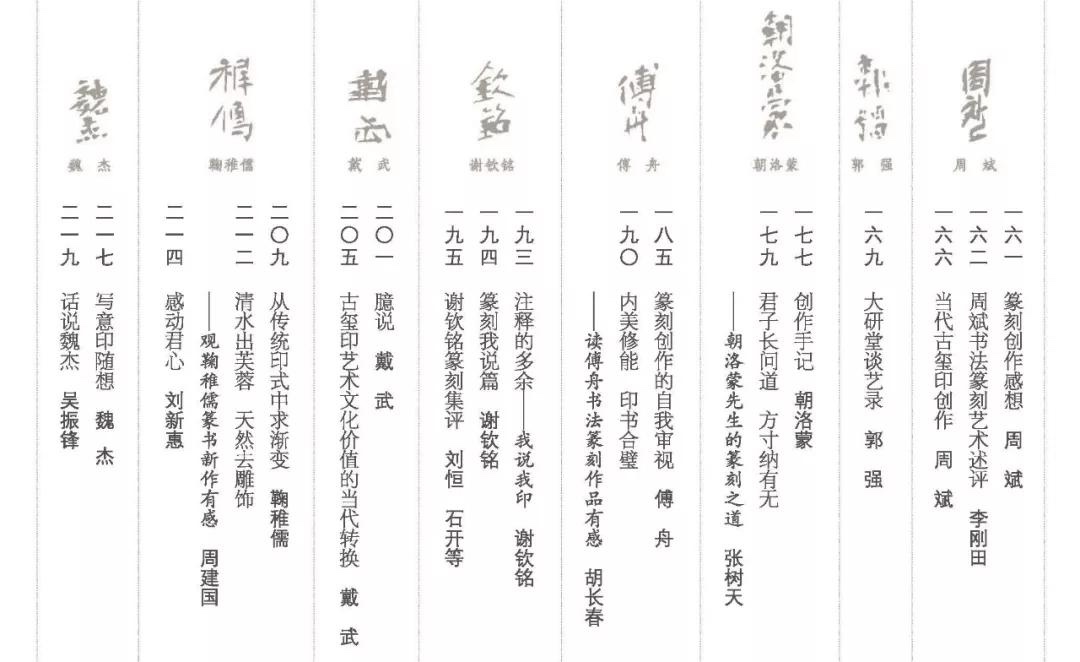 周斌
一六一 篆刻创作感想 周斌
一六二 周斌书法篆刻艺术述评 李刚田
一六六 当代古玺印创作 周斌
郭强
一六九 大研堂谈艺录 郭强
朝洛蒙
朝洛蒙
一七七 创作手记 朝洛蒙
一七九 君子长问道 方寸纳有无
——朝洛蒙先生的篆刻之道 张树天
傅舟
傅舟
一八五 篆刻创作的自我审视 傅舟
一九〇 内美修能 印书合璧
——读傅舟书法篆刻作品有感 胡长春
钦铭
谢钦铭
一九三 注释的多余——我说我印 谢钦铭
一九四 篆刻我说篇 谢钦铭
一九五 谢钦铭篆刻集评 刘恒 石开等
戴武
二〇一 臆说 戴武
二〇五 古玺印艺术文化价值的当代转换 戴武
稚儒
鞠稚儒
二〇九 从传统印式中求渐变 鞠稚儒
二一二 清水出芙蓉 天然去雕饰
——观鞠稚儒篆书新作有感 周建国
二一四 感动君心 刘新惠
魏杰
魏杰
二一七 写意印随想 魏杰
二一九 话说魏杰 吴振锋